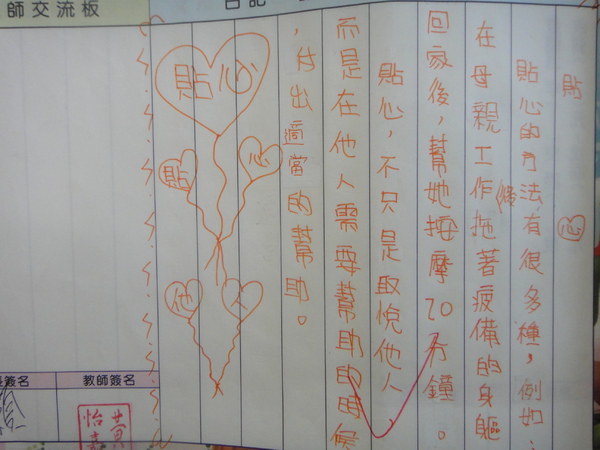 師交流板
日記
貼心
貼心的方法有很多種,例如:
在母親工作後拖著疲備的身軀
回家後,幫她按摩20分鐘。
貼心,不只是取悅他人,
而是在他人需要幫助的時候
,付出適當的幫助。
貼心
貼
心
他
人
簽名
教師簽名
黃
怡